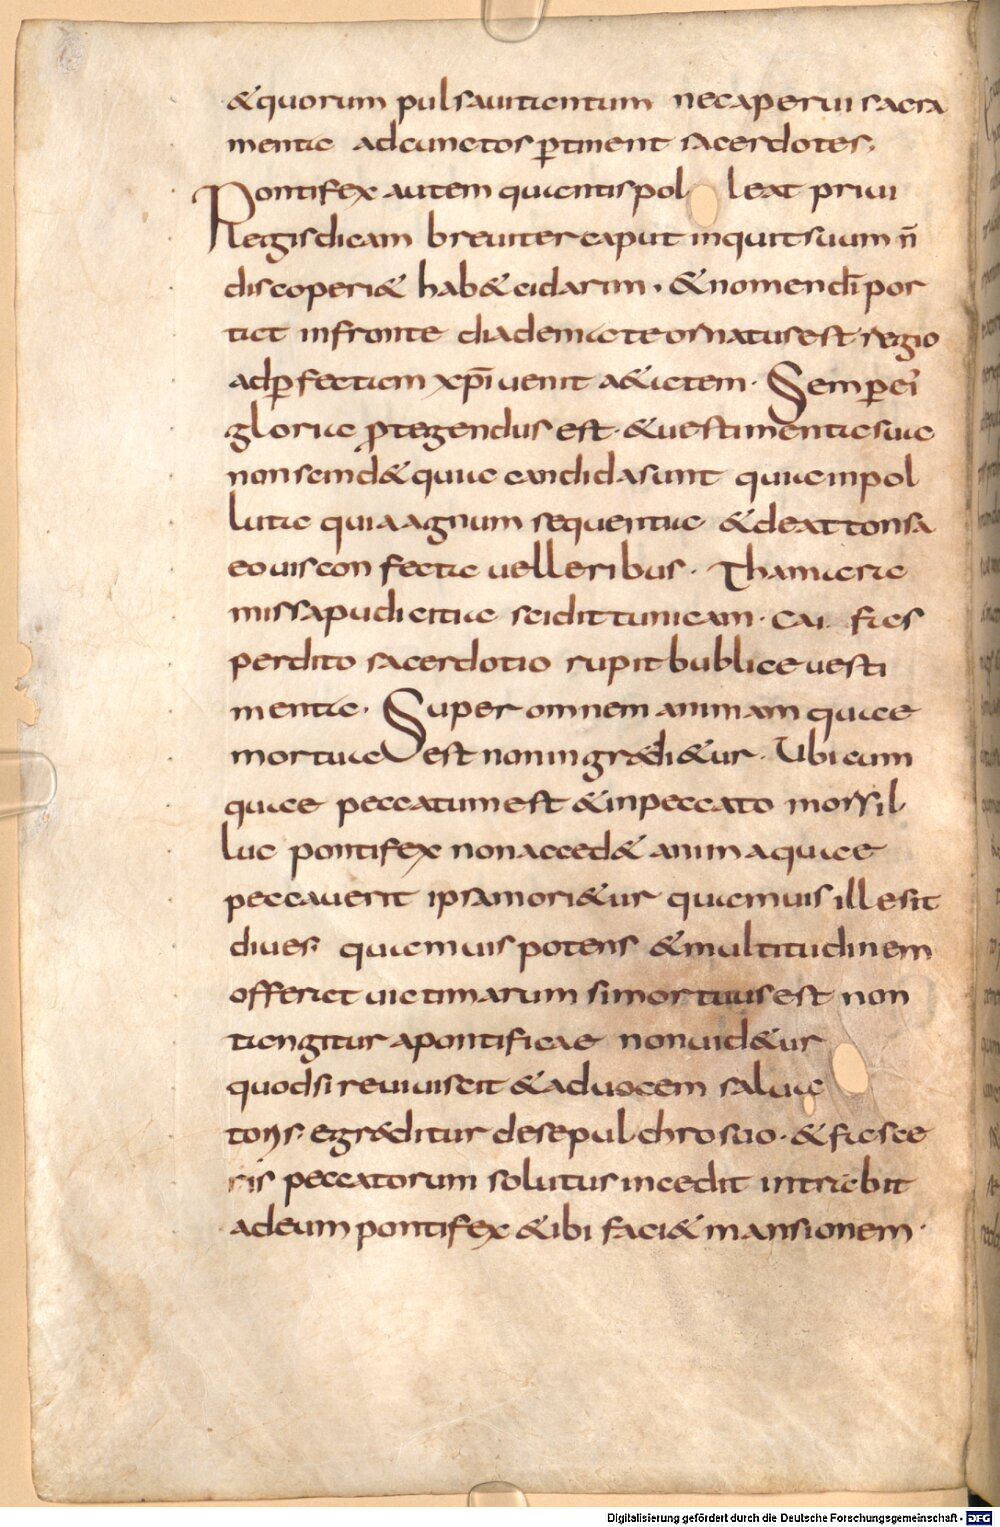 & quorum pulsaui tantum nec aperui sacra
menta ad cunctos ꝑtinent sacerdotes.
Pontifex autem qui antis pol leat priui
Legis dicam breuiter caput inquit suum n̄
discoperi& hab& cidarim · & nomen dī por
tat in fronte diademate ornatus est regio
ad ꝑfectam xp̄i uenit a&atem · Semꝑ ei'
gloria ꝓtegendus est · & uestimenta sua
non scind& quia candida sunt quia inpol
luta quia agnum sequentia & de attonsa
eo uis confecta uelleribus · Thamar a
missa pudicitia scidit tunicam · Cai fas
perdito sacerdotio rupit bublice uesti
menta · Super omnem animam quae
mortua est non ingr&di&ur · Ubicum
quae peccatum est & in peccato mors il
luc pontifex non acced& anima quae
peccauerit ipsa mori&ur quamuis ille sit
diues quamuis potens & multitudinem
offerat uictimarum si mortuus est non
tangitur a pontificae non uid&ur
quod si reuiuiscit & ad uocem salua
toris egr&ditur de sepulchro suo · & fasce
is peccatorum solutus incedit intrabit
ad eum pontifex & ibi faci& mansionem ·
Digitalisierung gefördert durch die Deutsche Forschungsgemeinschaft - DFG